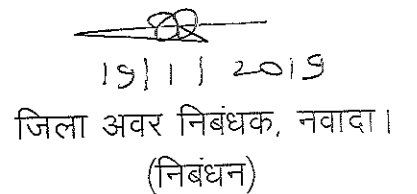 19/1/2019
जिला अवर निबंधक, नवादा।
(निबंधन)